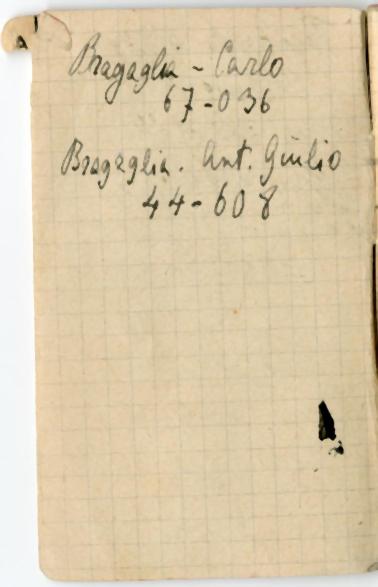 Bragaglia - Carlo
67-036
Bragaglia. Ant. Giulio
44-608